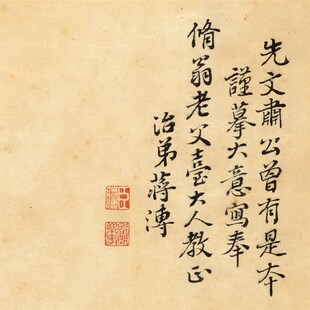 先文肅公曾有是本
謹摹大意寫奉
脩翁老父臺大人教正
治弟蔣溥